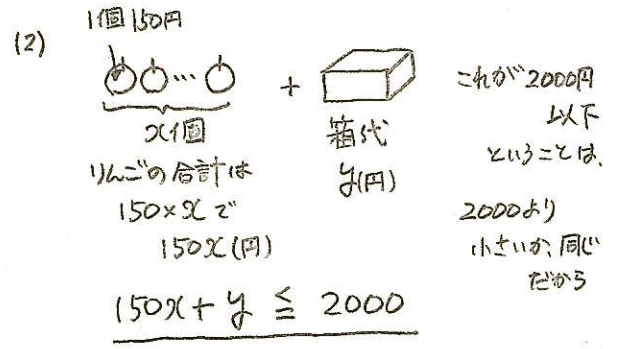 (2)
1個150円
…
+
x個
箱代
y(円)
りんごの合計は
150×xで
150x(円)
これが2000円
以下
ということは、
2000より
小さいか、同じ
だから
150x + y ≦ 2000